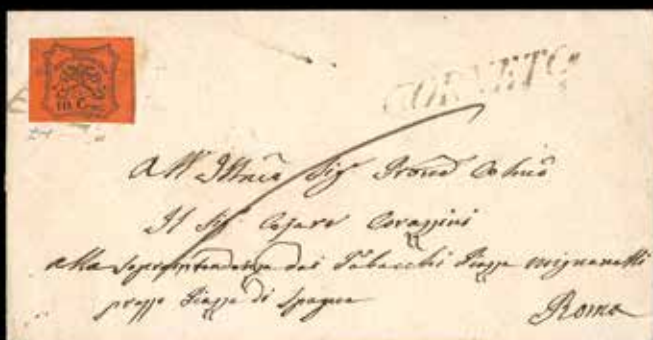 10 Cent.
CORNETO
All' Illmo Sig Prone Colmo
Il Sig. Cesare Corazzini
alla Soprintendenza dei Tabacchi Piazza Mignanelli
presso Piazza di Spagna
Roma